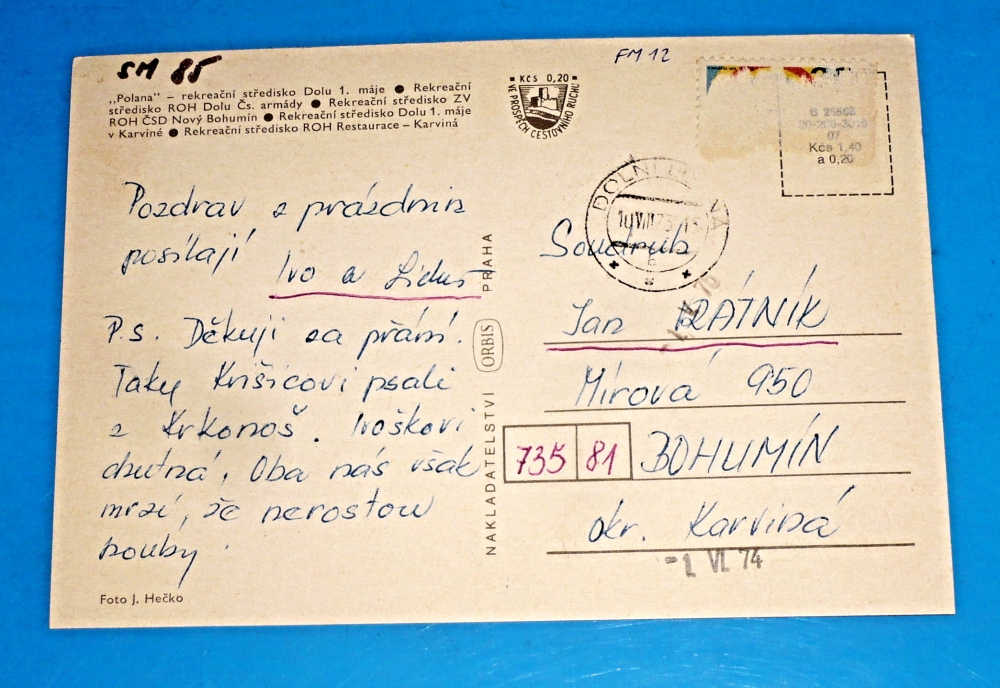 SM 85
FM 12
„Polana" – rekreační středisko Dolu 1. máje ● Rekreační
středisko ROH Dolu Čs. armády ● Rekreační středisko ZV
ROH ČSD Nový Bohumín ● Rekreační středisko Dolu 1. máje
v Karviné ● Rekreační středisko ROH Restaurace – Karviná
Kčs 0,20
VE PROSPĚCH CESTOVNÍHO RUCHU
07
Kčs 1,40
a 0,20
Pozdrav z prázdnin
posílají
Ivo a Liduš
P.s. Děkuji za přání.
Taky Krišicovi psali
z Krkonoš. Ivoškovi
chutná. Oba nás však
mrzí, že nerostou
houby.
Foto J. Hečko
NAKLADATELSTVÍ ORBIS PRAHA
DOLNÍ
Soudruh
Jan RÁTNÍK
Mírová 950
735 81 BOHUMÍN
okr. Karviná
-1. VI. 74